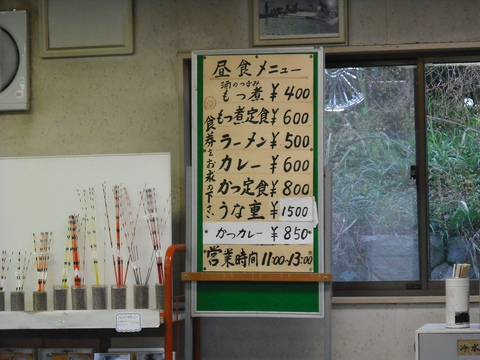 昼食メニュー
酒のつまみ
もつ煮 ¥400
もつ煮定食 ¥600
ラーメン ¥500
カレー ¥600
かつ定食 ¥800
うな重 ¥1500
かつカレー ¥850
営業時間 11:00-13:00
食券をお求め下さい
冷水